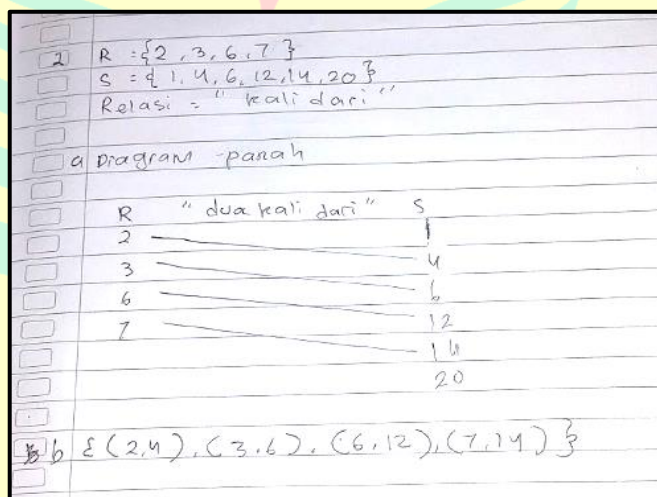 2 R = {2, 3, 6, 7}
S = {1, 4, 6, 12, 14, 20}
Relasi = "kali dari"
a Diagram panah
R "dua kali dari" S
2 1
3 4
6 6
7 12
14
20
b {(2,4), (3,6), (6,12), (7,14)}